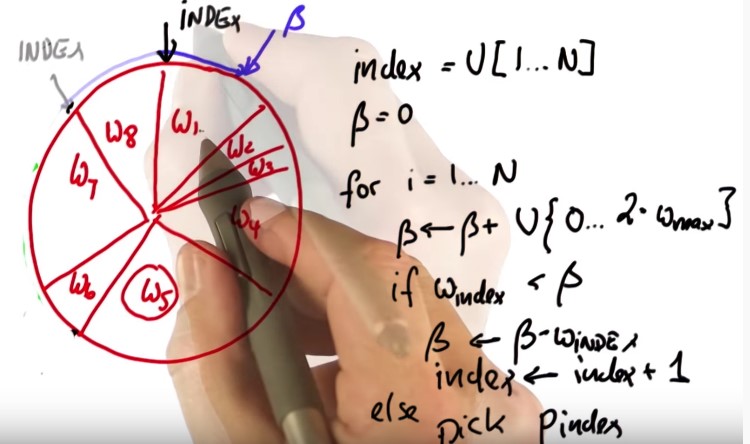 INDEX
β
INDEX
ω8
ω1
ω2
ω3
ω7
ω4
ω6
ω5
index = U[1...N]
β=0
for i = 1... N
β ← β + U{0... 2·ωmax}
if ωindex < β
β ← β-ωINDEX
index ← index + 1
else pick Pindex